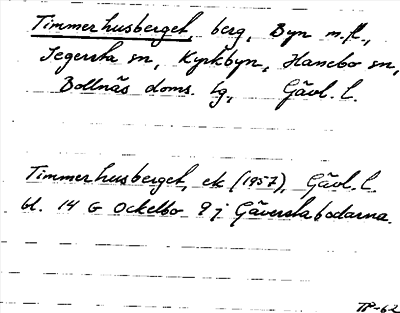 Timmerhusberget berg, Byn m.fl.,
Segersta sn, Kyrkbyn, Hanebo sn,
Bollnäs doms. tg, Gävl. l.
Timmerhusberget, ek (1957), Gävl. l.
bl. 14 G Ockelbo 9 j Gäverstabodarna.
TP-62